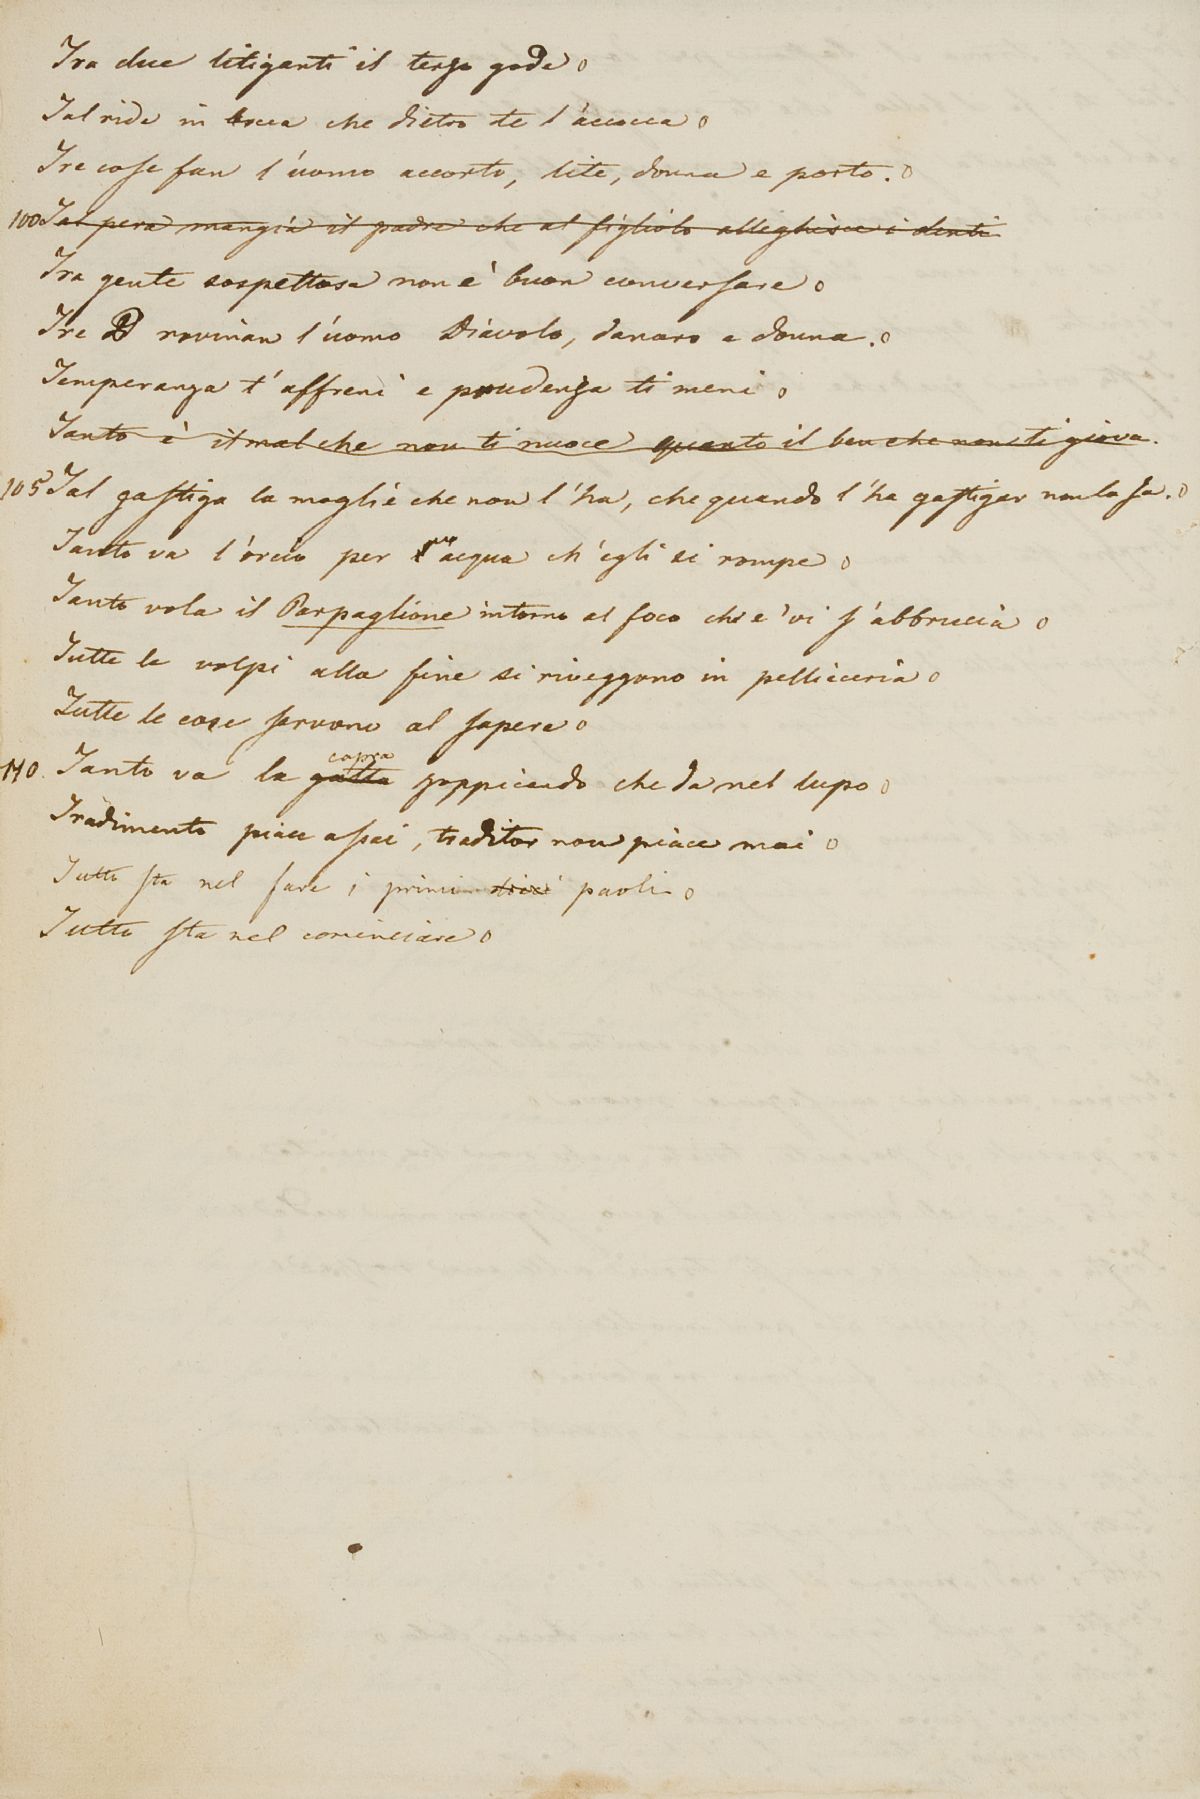 Tra due litiganti il terzo gode o
Tal ride in bocca che dietro te l'accocca o
Tre cose fan l'uomo accorto, lite, donna e porto. o
100 Tal pera mangiá il padre che al figliolo alleghisce i denti
Tra gente sospettosa non è buon conversare o
Tre D rovinan l'uomo Diavolo, danaro e donna. o
Temperanza t'affreni e prudenza ti meni o
Tanto è il mal che non ti nuoce quanto il ben che non ti giova.
105 Tal gastiga la moglie che non l'ha, che quando l'ha gastigar non la sa. o
Tanto va l'orcio per l'acqua ch'egli si rompe o
Tanto vola il Parpaglione intorno al foco che e' vi s'abbrucia o
Tutte le volpi alla fine si riveggono in pellicceria o
Tutte le cose servono al sapere o
capra
110. Tanto va la gatta zoppicando che da nel lupo o
Tradimento piace assai, traditor non piace mai o
Tutto sta nel fare i primi paoli o
Tutto sta nel cominciare o